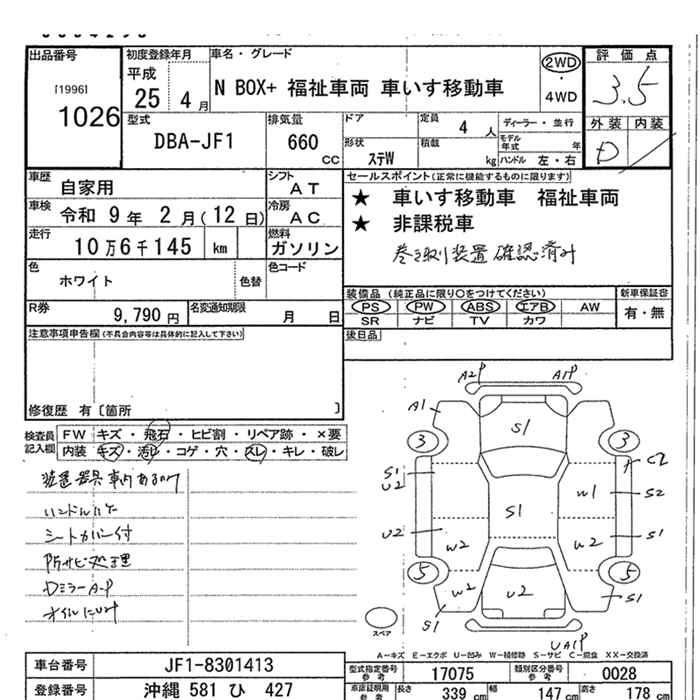 出品番号
[1996]
1026
初度登録年月
平成
25 4 月
車名・グレード
N BOX+ 福祉車両 車いす移動車
2WD
・
4WD
評価点
3.5
外装 内装
D
型式
DBA-JF1
排気量
660
CC
ドア
形状
ステW
定員
4 人
積載
kg
ディーラー・並行
モデル年式 年
ハンドル 左・右
車歴
自家用
シフト
AT
車検
令和 9 年 2 月(12 日)
冷房
AC
走行
10 万 6 千 145 km
燃料
ガソリン
色
ホワイト
色替
色コード
R券
9,790 円
名変通知期限
月 日
セールスポイント(正常に機能するものに限ります)
★ 車いす移動車 福祉車両
★ 非課税車
巻き取り装置確認済み
装備品(純正品に限り○をつけてください)
PS PW ABS エアB AW
SR ナビ TV カワ
新車保証書
有・無
後日品
注意事項申告欄(不具合内容等は具体的に記入して下さい)
修復歴 有〔箇所 〕
検査員記入欄
FW キズ・飛石・ヒビ割・リペア跡・×要
内装 キズ・汚れ・コゲ・穴・スレ・キレ・破レ
シートカバー付
防サビ処理
DミラーA-P
A2P A1P
A1
S1
3 3
S1
U2
C2
W1 S2
S1
U2 W2
W2 S1
5 5
W2 U2 W2
S1 S1
UA1P
スペア
A-キズ E-エクボ U-凹み W-補修跡 S-サビ C-腐食 XX-交換済
車台番号
JF1-8301413
登録番号
沖縄 581 ひ 427
型式指定番号
参考
17075
類別区分番号
参考
0028
車庫証明用
参考
長さ 339 cm 幅 147 cm 高さ 178 cm